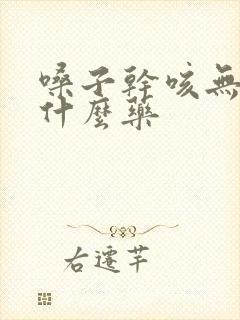 嗓子幹咳無
什麼藥
右遷芊